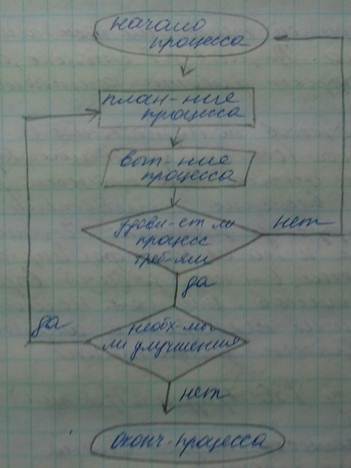 начало
процесса
план-ние
процесса
вып-ние
процесса
удовл-ет ли
процесс
треб-ям
нет
да
необх-мы
ли улучшения
да
нет
оконч. процесса